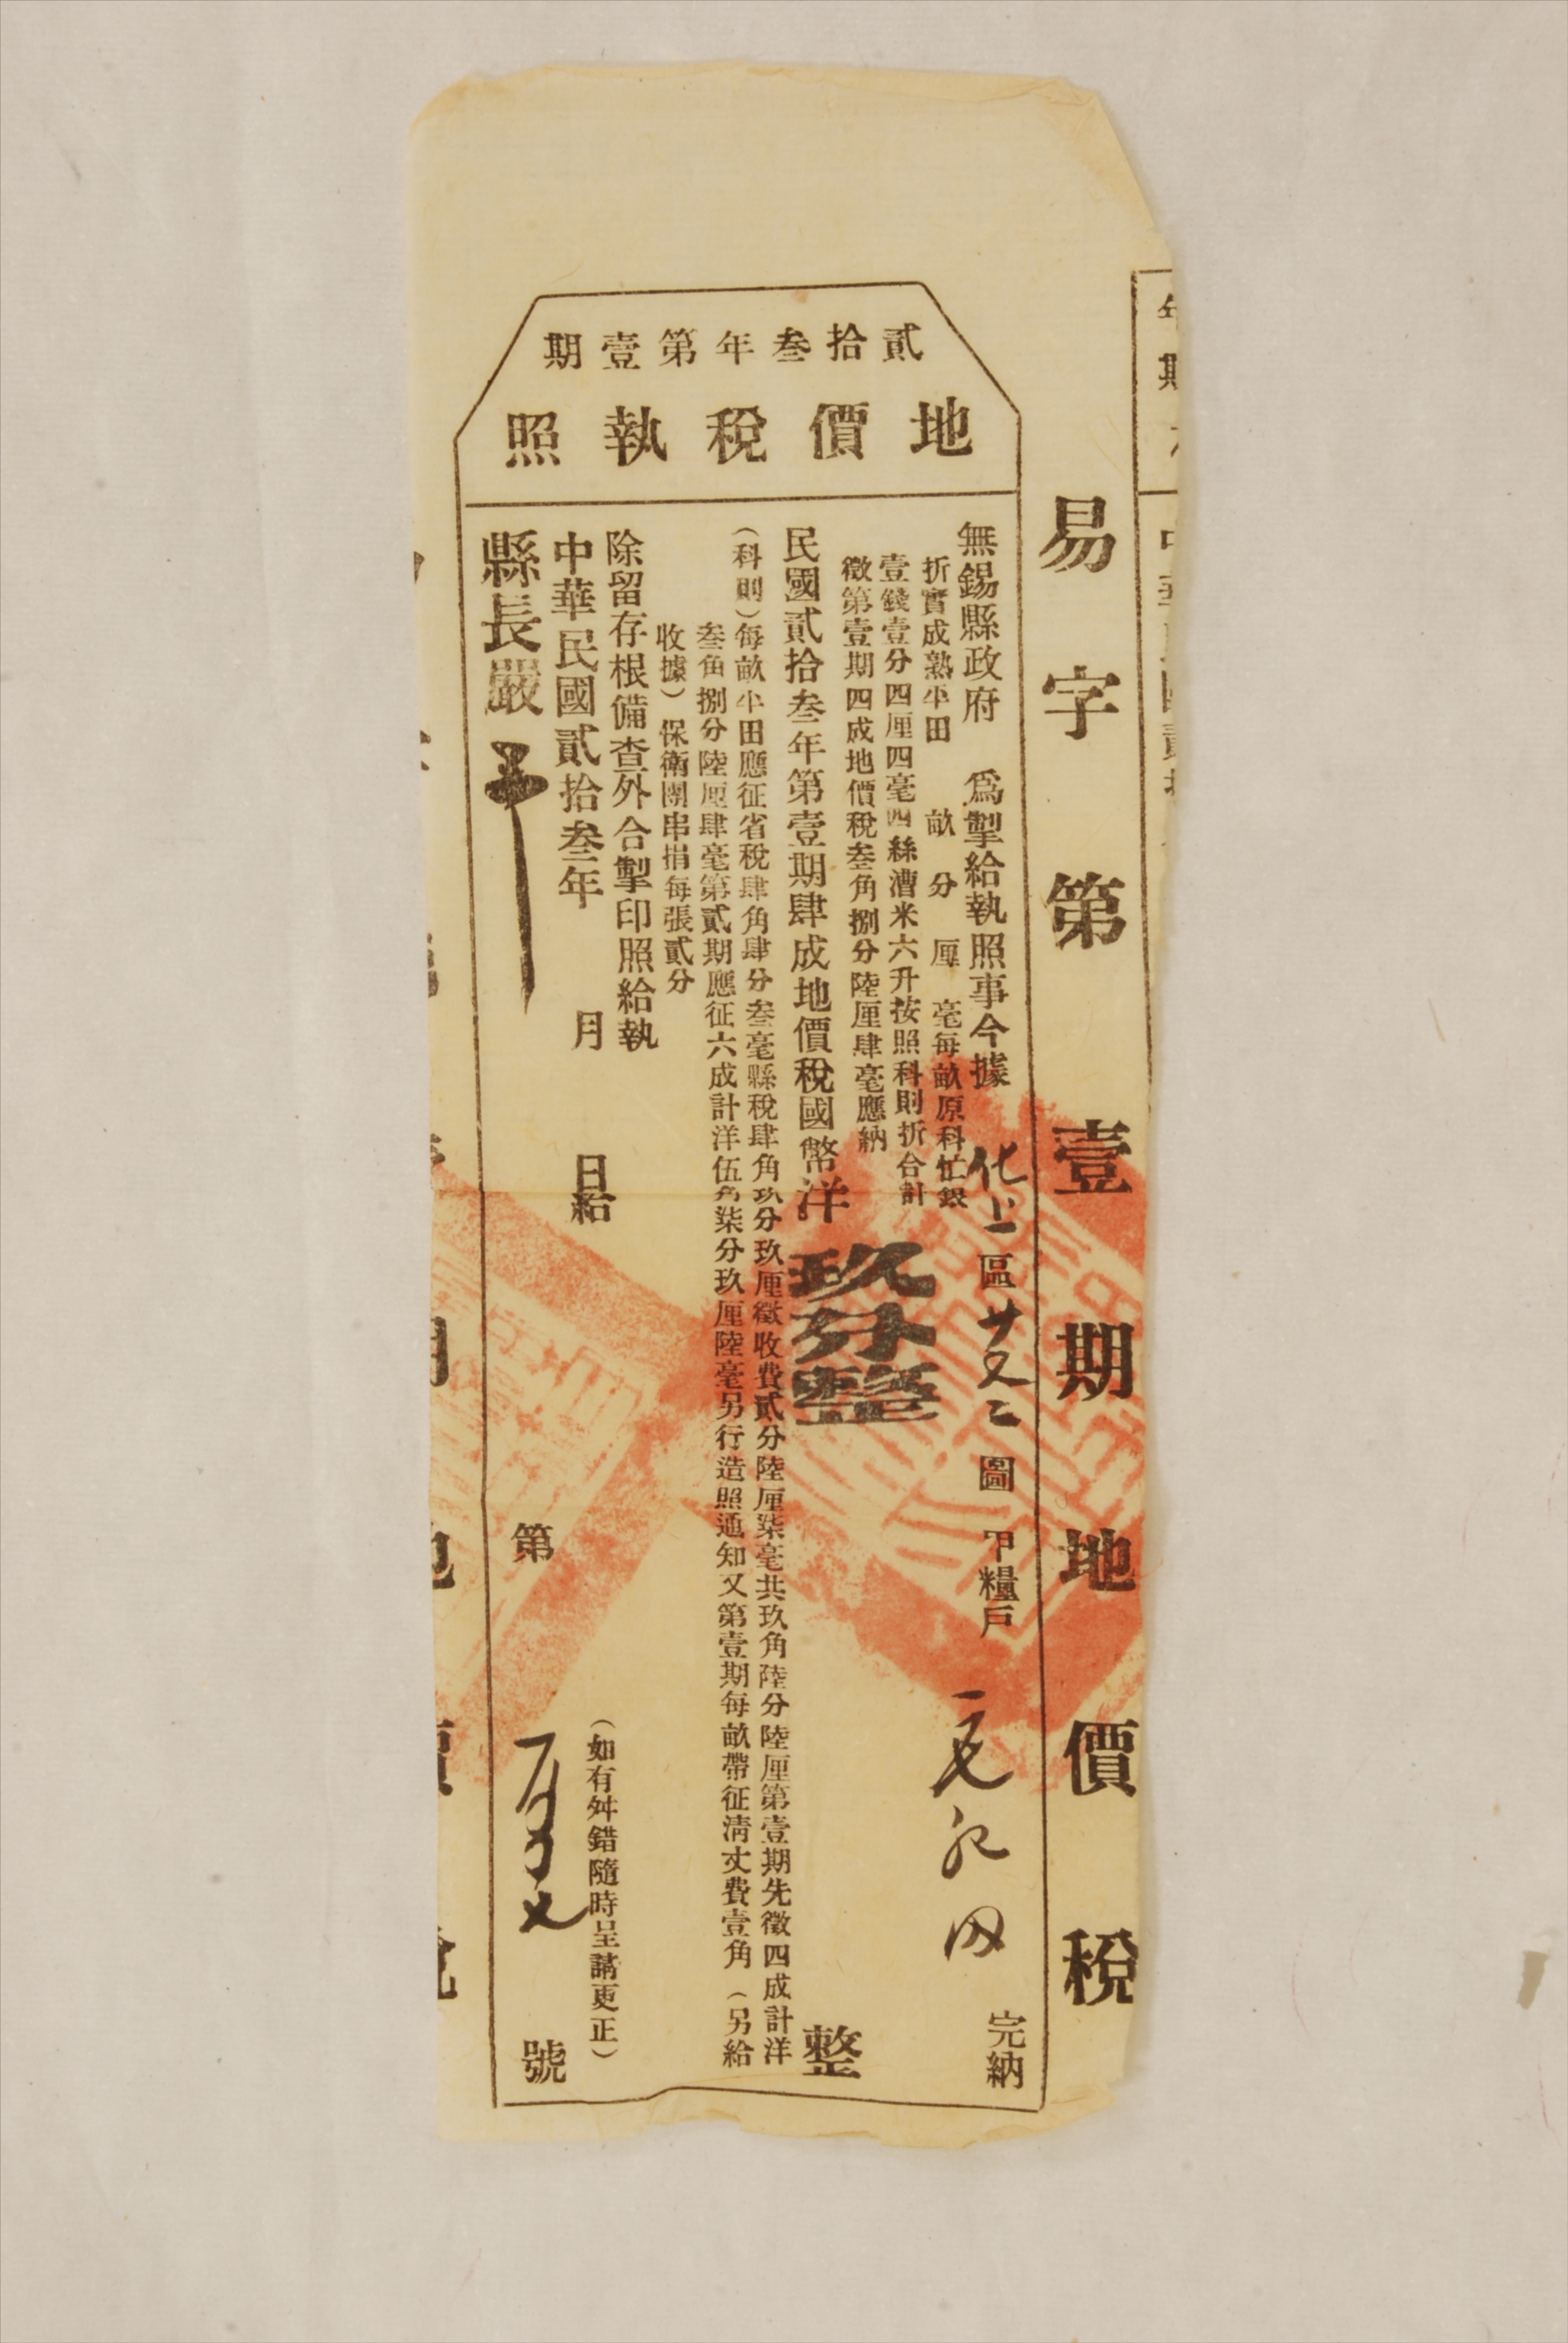 易字第壹期地價稅
貳拾叁年第壹期
地價稅執照
無錫縣政府 爲掣給執照事今據 化上區廿 圖 甲糧戶 永 完納
折實成熟平田 畝 分 厘 毫每畝原科忙銀
壹錢壹分四厘四毫四絲漕米六升按照科則折合計
徵第壹期四成地價稅叁角捌分陸厘肆毫應納
民國貳拾叁年第壹期肆成地價稅國幣洋 玖分整 整
（科則）每畝平田應征省稅肆角肆分叁毫縣稅肆角玖分玖厘徵收費貳分陸厘柒毫共玖角陸分陸厘第壹期先徵四成計洋
叁角捌分陸厘肆毫第貳期應征六成計洋伍角柒分玖厘陸毫另行造照通知又第壹期每畝帶征清丈費壹角（另給
收據）保衛團串捐每張貳分
除留存根備查外合掣印照給執
中華民國貳拾叁年 月 日給 （如有舛錯隨時呈請更正）
縣長嚴 第 號